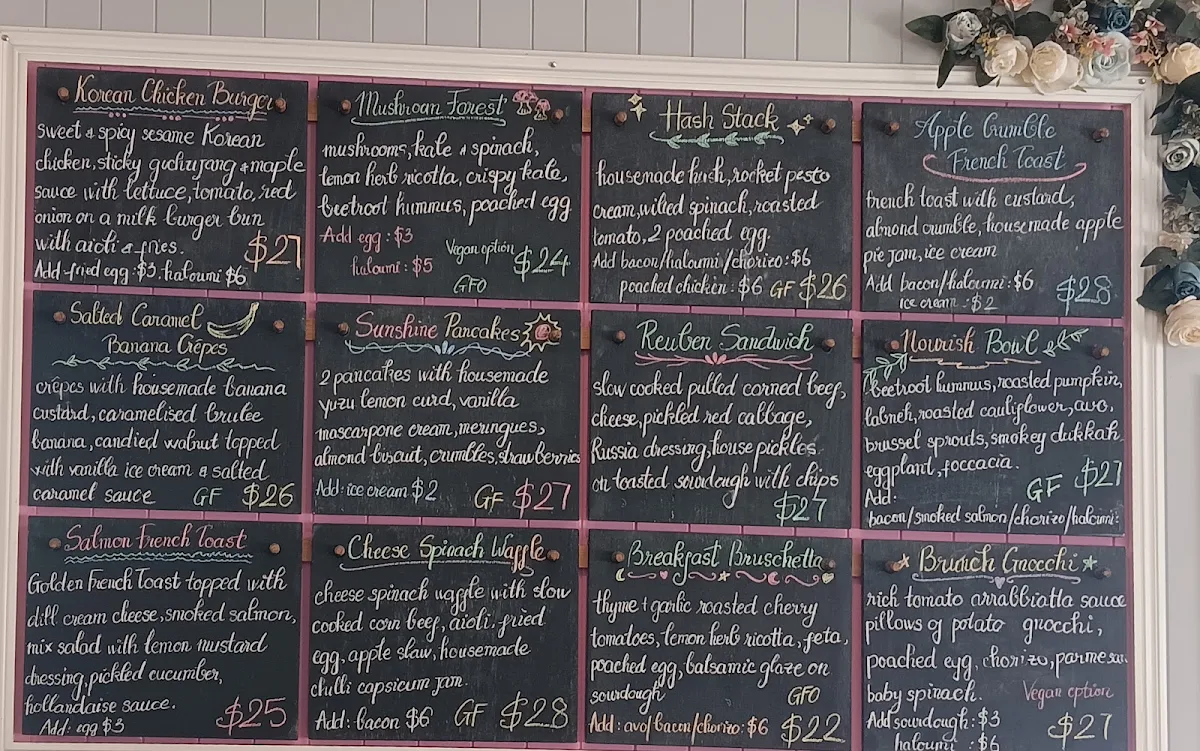 Korean Chicken Burger
sweet & spicy sesame Korean
chicken, sticky guchujang & maple
sauce with lettuce, tomato, red
onion on a milk burger bun
with aioli & fries.
$27
Add fried egg: $3 haloumi $6
Mushroan Forest
mushrooms, kale & spinach,
lemon herb ricotta, crispy kale,
beetroot hummus, poached egg
Add egg: $3
haloumi: $5
Vegan option
GFO
$24
Hash Stack
housemade hash, rocket pesto
cream, wilted spinach, roasted
tomato, 2 poached egg.
Add bacon/haloumi/chorizo: $6
poached chicken: $6 GF $26
Apple Crumble
French Toast
french toast with custard,
almond crumble, housemade apple
pie jam, ice cream
Add bacon/haloumi: $6
ice cream: $2
$28
Salted Caramel
Banana Crêpes
crêpes with housemade banana
custard, caramelised brulee
banana, candied walnut topped
with vanilla ice cream & salted
caramel sauce GF $26
Sunshine Pancakes
2 pancakes with housemade
yuzu lemon curd, vanilla
mascarpone cream, meringues,
almond biscuit, crumbles, strawberries
Add: ice cream $2 GF $27
Reuben Sandwich
slow cooked pulled corned beef,
cheese, pickled red cabbage,
Russia dressing, house pickles
on toasted sourdough with chips
$27
Nourish Bowl
beetroot hummus, roasted pumpkin,
labneh, roasted cauliflower, avo,
brussel sprouts, smokey dukkah
eggplant, foccacia.
GF $27
Add:
bacon/smoked salmon/chorizo/haloumi:
Salmon French Toast
Golden French Toast topped with
dill cream cheese, smoked salmon,
mix salad with lemon mustard
dressing, pickled cucumber,
hollandaise sauce.
Add: egg $3
$25
Cheese Spinach Waffle
cheese spinach waffle with slow
cooked corn beef, aioli, fried
egg, apple slaw, housemade
chilli capsicum jam.
Add: bacon $6 GF $28
Breakfast Bruschetta
thyme + garlic roasted cherry
tomatoes, lemon herb ricotta, feta,
poached egg, balsamic glaze on
sourdough GFO
Add: avo/bacon/chorizo: $6 $22
Brunch Gnocchi
rich tomato arrabbiatta sauce
pillows of potato gnocchi,
poached egg, chorizo, parmesan
baby spinach. Vegan option
Add sourdough: $3
haloumi: $6
$27